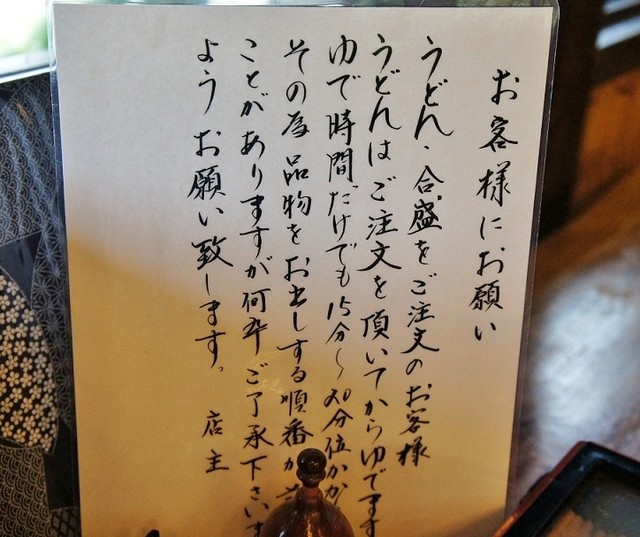 お客様にお願い
うどん、合盛をご注文のお客様
うどんはご注文を頂いてからゆでます
ゆで時間だけでも15分〜20分位かか
その為品物をお出しする順番が
ことがありますが何卒ご了承下さいます
よう お願い致します。 店主